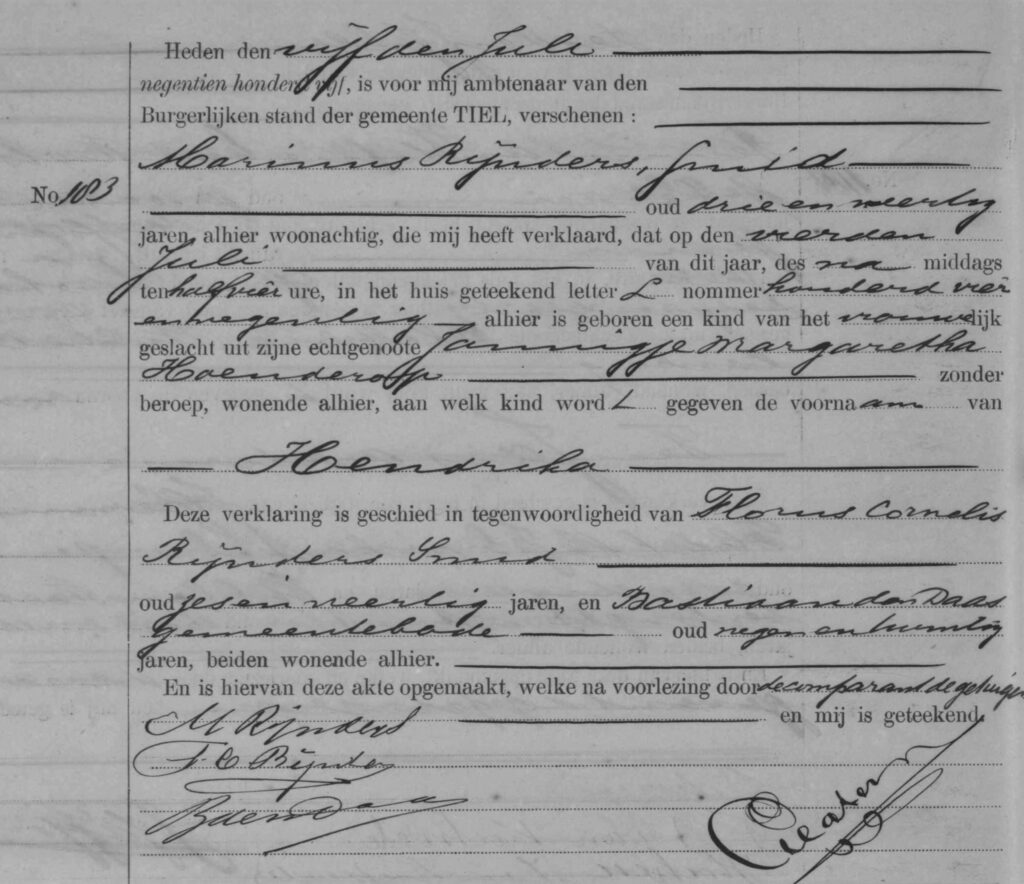 Heden den vijfden Juli
negentien honderd vijf, is voor mij ambtenaar van den
Burgerlijken stand der gemeente TIEL, verschenen :
Marinus Rijnders, Smid
No. 183
oud drie en veertig
jaren, alhier woonachtig, die mij heeft verklaard, dat op den vierden
Juli van dit jaar, des na middags
ten half vier ure, in het huis geteekend letter L nommer honderd vier
en negentig alhier is geboren een kind van het vrouwelijk
geslacht uit zijne echtgenoote Jannigje Margaretha
Hoenderop zonder
beroep, wonende alhier, aan welk kind word t gegeven de voornaam van
Hendrika
Deze verklaring is geschied in tegenwoordigheid van Florus Cornelis
Rijnders Smid
oud zes en veertig jaren, en Bastiaan den Daas
gemeentebode oud negen en twintig
jaren, beiden wonende alhier.
En is hiervan deze akte opgemaakt, welke na voorlezing door de comparant de getuigen
en mij is geteekend.
M Rijnders
F. C Rijnders
B den Daas